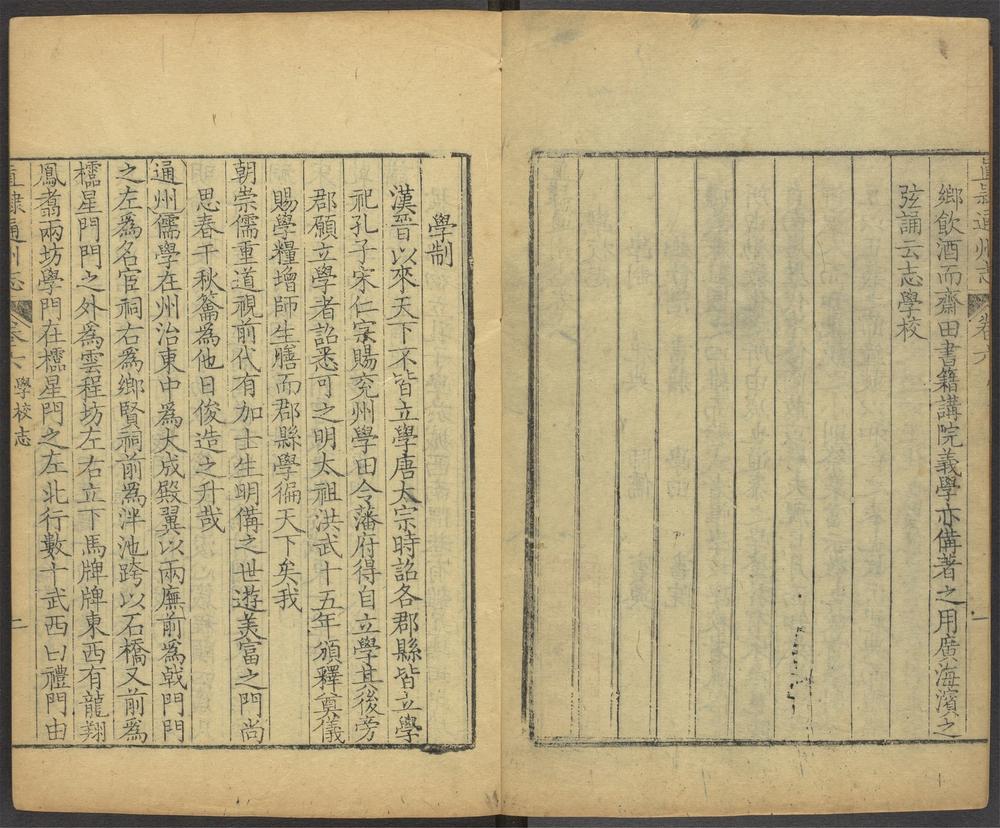 直隸通州志 卷六
鄉飲酒而齋田書籍講院義學亦備著之用廣海濱之
弦誦云志學校
學制
漢晉以來天下不皆立學唐太宗時詔各郡縣皆立學
祀孔子宋仁宗賜兖州學田令藩府得自立學其後旁
郡願立學者詔悉可之明太祖洪武十五年頒釋奠儀
賜學糧增師生膳而郡縣學徧天下矣我
朝崇儒重道視前代有加士生明備之世遊美富之門尚
思春干秋籥為他日俊造之升哉
通州儒學在州治東中為大成殿翼以兩廡前為戟門門
之左為名宦祠右為鄉賢祠前為泮池跨以石橋又前為
櫺星門門之外為雲程坊左右立下馬牌牌東西有龍翔
鳳翥兩坊學門在櫺星門之左北行數十武西曰禮門由
直隸通州志 卷六 學校志 一